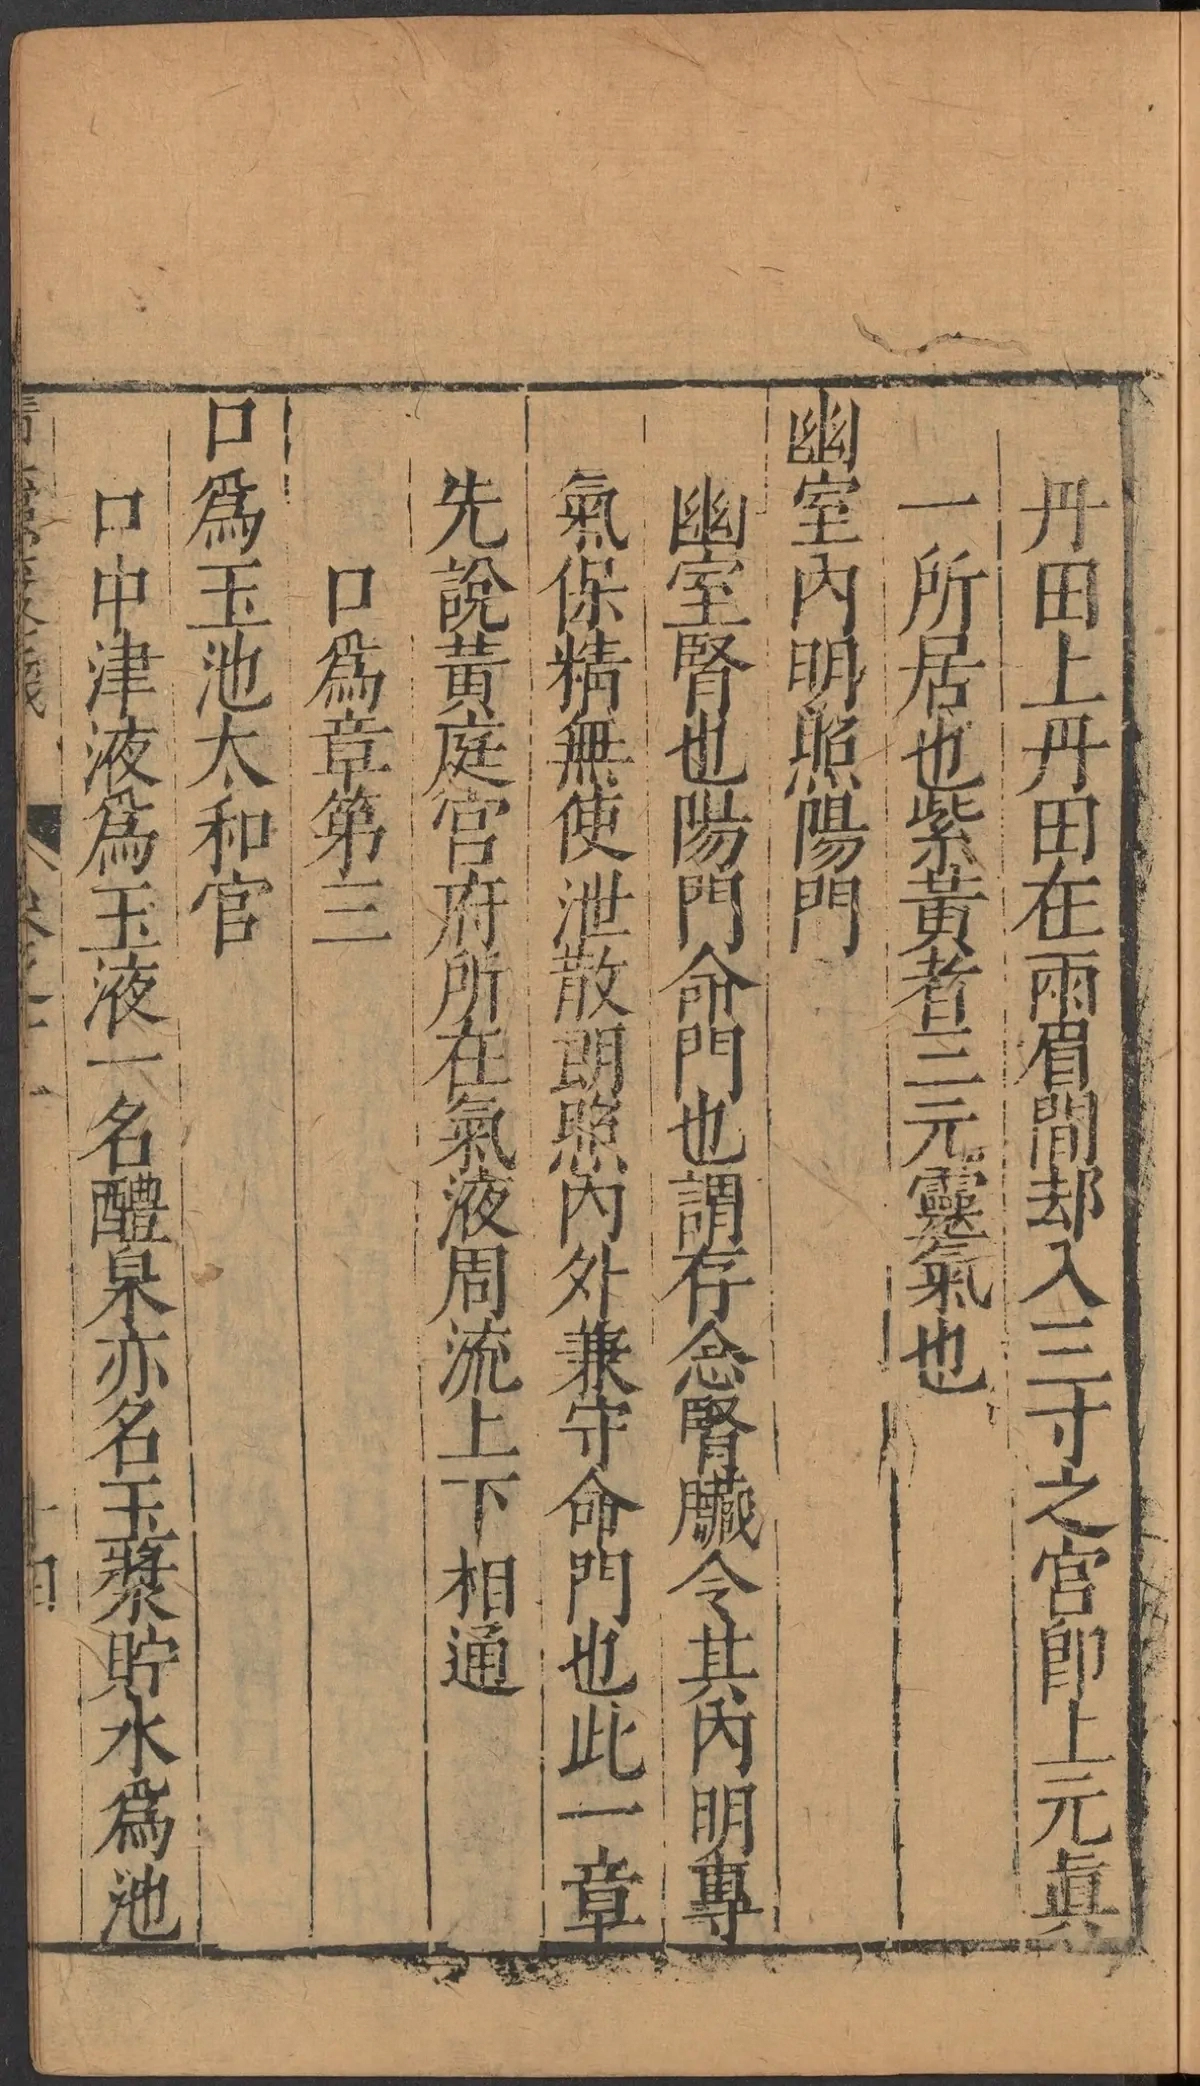 丹田上丹田在兩眉間却入三寸之宮即上元眞
一所居也紫黃者三元靈氣也
幽室內明照陽門
幽室腎也陽門命門也謂存念腎臟令其內明專
氣保精無使泄散朗照內外兼守命門也此一章
先說黃庭宮府所在氣液周流上下相通
口爲章第三
口爲玉池太和官
口中津液爲玉液一名醴泉亦名玉漿貯水爲池